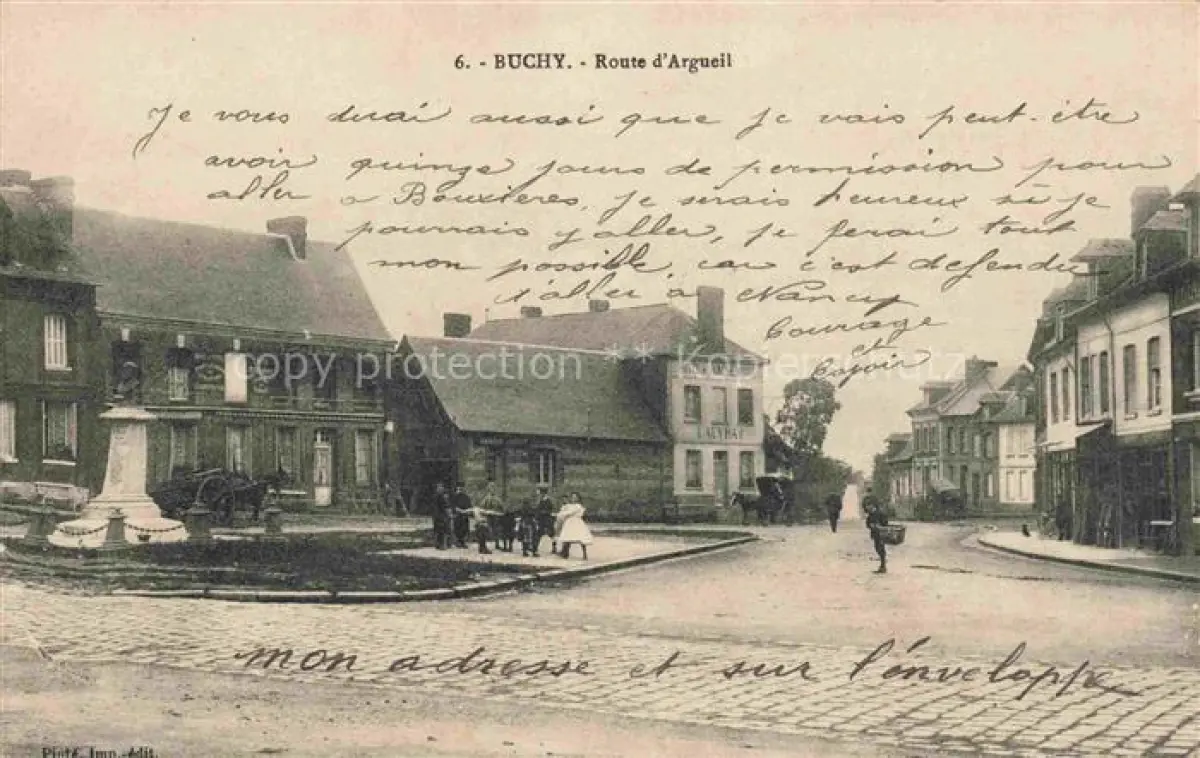 6. - BUCHY. - Route d'Argueil
Je vous dirai aussi que je vais peut-être
avoir quinze jours de permission pour
aller a Bouxieres, je serais heureux si je
pourrais y aller, je ferai tout
mon possible, car c'est defendu
d'aller à Nancy
Courage
et
Espoir
copy protection ** Kopierschutz
mon adresse et sur l'énveloppe
Pinté, Imp.-édit.